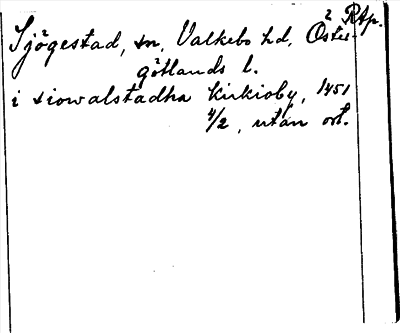 Rap.
Sjögestad, sn, Valkebo hd, Öster-
götlands l.
i siowalstadha kirkioby, 1451
4/2, utan ort.